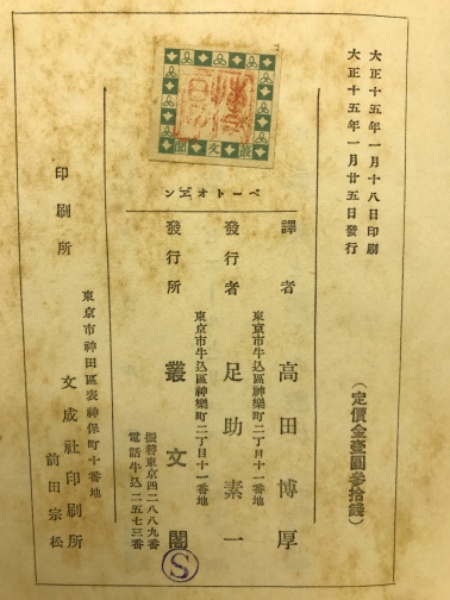 大正十五年一月十八日印刷
大正十五年一月廿五日發行
(定價金壹圓參拾錢)
ベートオヹン
譯者 高田博厚
東京市牛込區神樂町二丁目十一番地
發行者 足助素一
東京市牛込區神樂町二丁目十一番地
發行所 叢文閣
振替東京四二八八九番
電話牛込二五七三番
東京市神田區表神保町十番地
印刷所 文成社印刷所
前田宗松
叢文閣
S